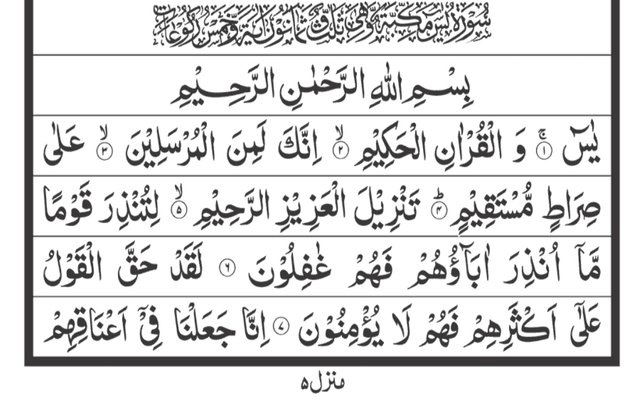 سُوْرَةُ يٰسٓ مَكِّيَّةٌ وَّهِيَ ثَلٰثٌ وَّثَمَانُوْنَ اٰيَةً وَّخَمْسُ رُكُوْعَاتٍ
بِسْمِ اللّٰهِ الرَّحْمٰنِ الرَّحِيْمِ
يٰسٓ ۚ‏﴿۱﴾ وَ الْقُرْاٰنِ الْحَكِيْمِ ۙ‏﴿۲﴾ اِنَّكَ لَمِنَ الْمُرْسَلِيْنَ ۙ‏﴿۳﴾ عَلٰى
صِرَاطٍ مُّسْتَقِيْمٍ ؕ‏﴿۴﴾ تَنْزِيْلَ الْعَزِيْزِ الرَّحِيْمِ ۙ‏﴿۵﴾ لِتُنْذِرَ قَوْمًا
مَّاۤ اُنْذِرَ اٰبَآؤُهُمْ فَهُمْ غٰفِلُوْنَ ﴿۶﴾ لَقَدْ حَقَّ الْقَوْلُ
عَلٰۤى اَكْثَرِهِمْ فَهُمْ لَا يُؤْمِنُوْنَ ﴿۷﴾ اِنَّا جَعَلْنَا فِيْۤ اَعْنَاقِهِمْ
منزل ۵